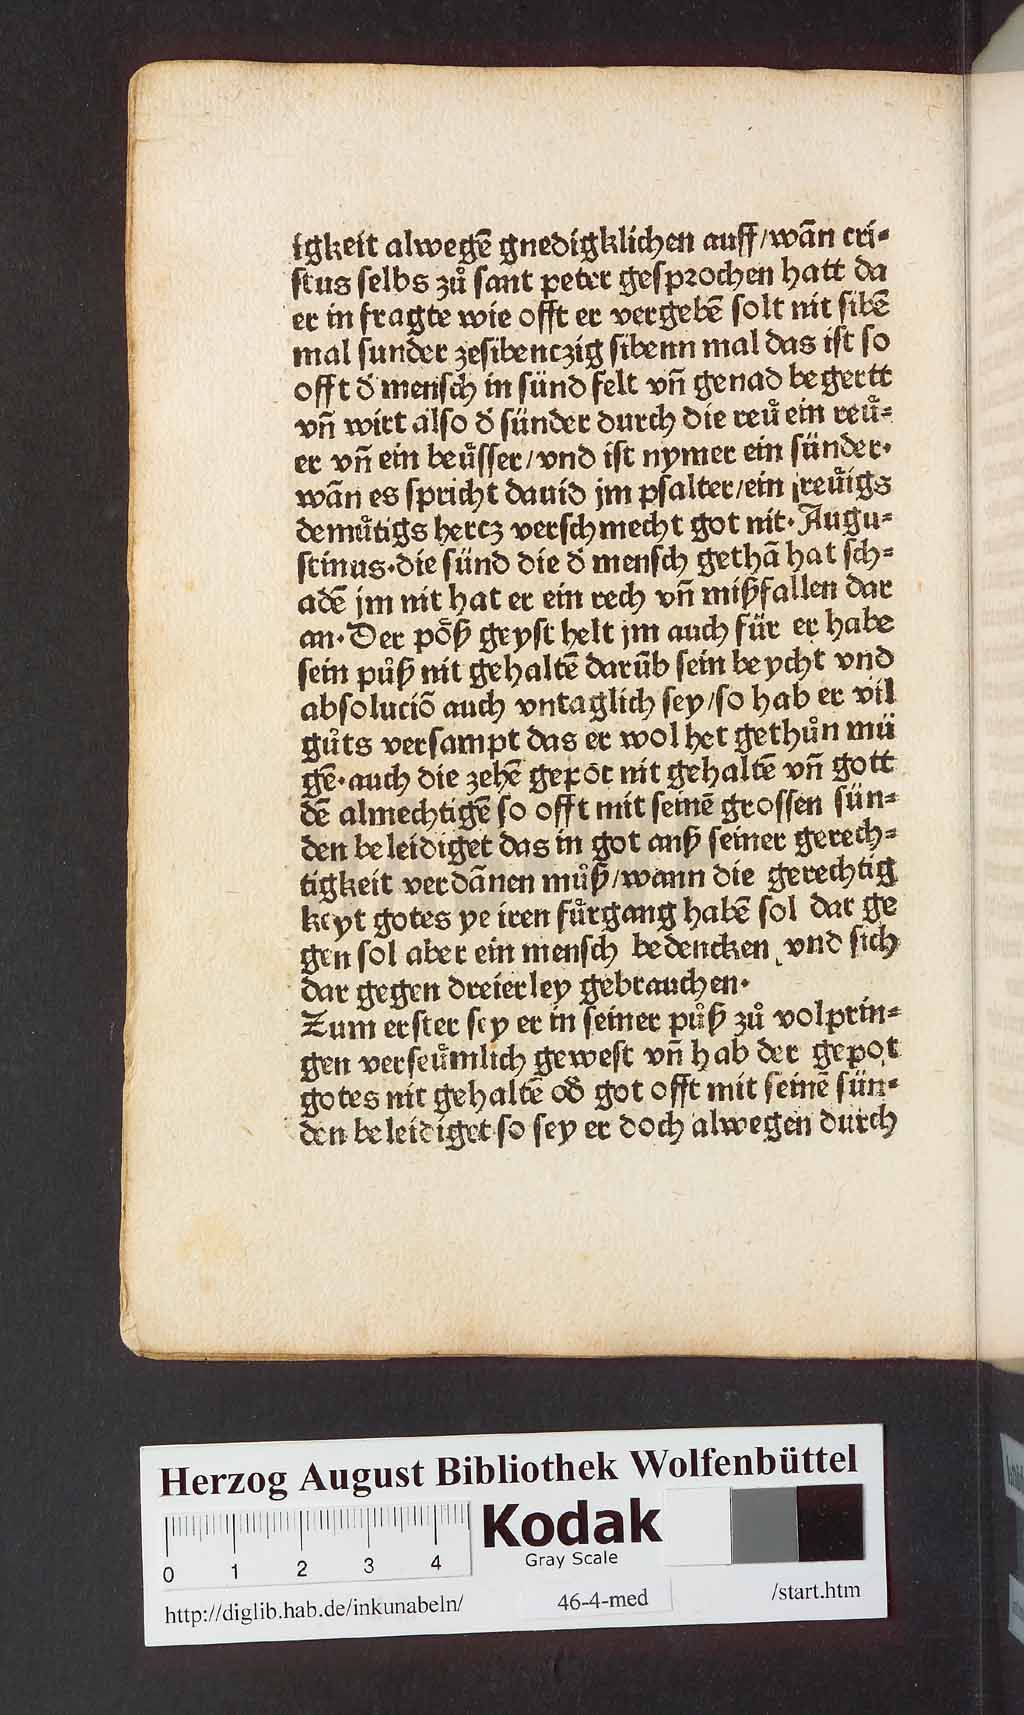 igkeit alwegē gnedigklichen auff/wān cri⸗
stus selbs zů sant peter gesprochen hatt da
er in fragte wie offt er vergebē solt nit sibē
mal sunder zesibenczig sibenn mal das ist so
offt d᷑ mensch in sünd felt vñ genad begertt
vñ wirt also d᷑ sünder durch die reů ein reů⸗
er vñ ein beůsser/vnd ist nymer ein sünder·
wān es spricht dauid jm psalter/ein reůigs
demůtigs hercz verschmecht got nit· Augu⸗
stinus·die sünd die d᷑ mensch gethā hat sch⸗
adē jm nit hat er ein rech vñ mißfallen dar
an· Der pôß geyst helt jm auch für er habe
sein půß nit gehaltē darūb sein beycht vnd
absoluciō auch vntaglich sey/so hab er vil
gůts versampt das er wol het gethůn mü
gē·auch die zehē gepot nit gehaltē vñ gott
dē almechtigē so offt mit seinē grossen sün⸗
den beleidiget das in got auß seiner gerech⸗
tigkeit verdānen můß/wann die gerechtig
keyt gotes ye iren fůrgang habē sol dar ge
gen sol aber ein mensch bedencken vnd sich
dar gegen dreierley gebrauchen·
Zum erster sey er in seiner půß zů volprin⸗
gen verseůmlich gewest vñ hab der gepot
gotes nit gehaltē od᷑ got offt mit seinē sün⸗
den beleidiget so sey er doch alwegen durch
Herzog August Bibliothek Wolfenbüttel
0 1 2 3 4
Kodak
Gray Scale
http://diglib.hab.de/inkunabeln/ 46-4-med /start.htm